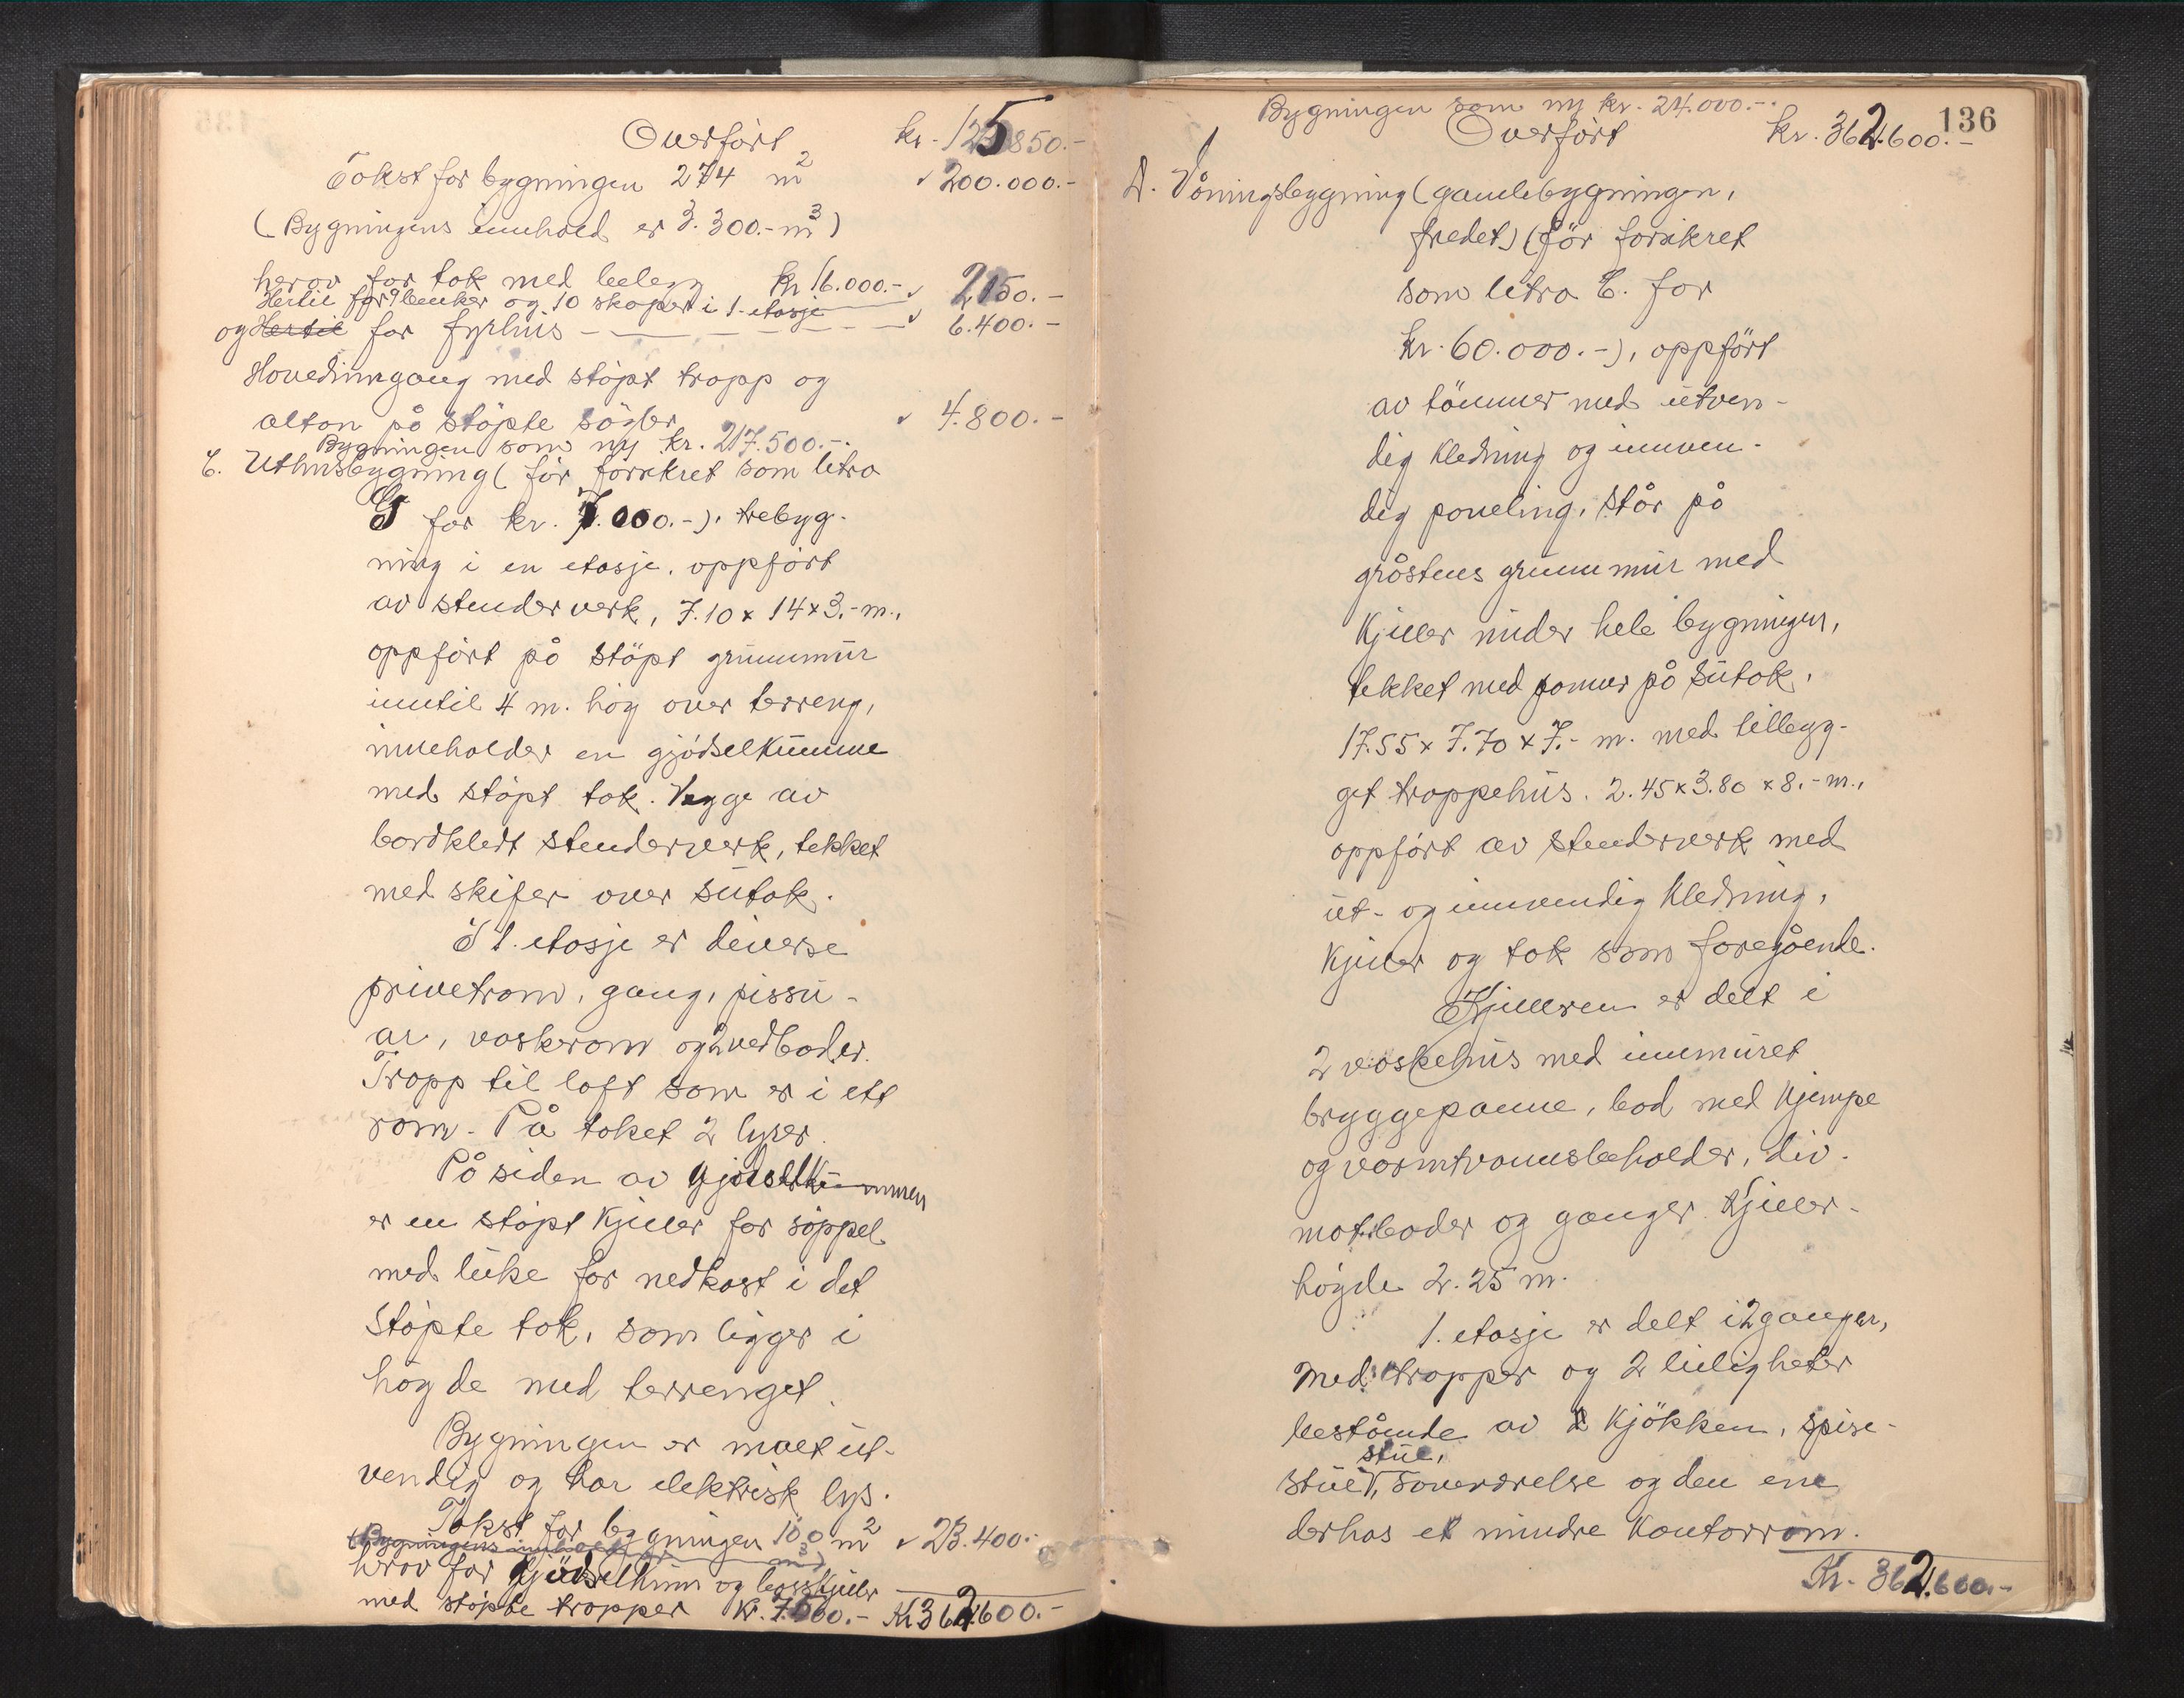 Overført kr. 125.850.-
Takst for bygningen 274 m2 200.000.-
(Bygningens innhold er 3.300.- m3)
herav for tak med belegg kr 16.000.-
Hertil for 9 benker og 10 skaper i 1. etasje 2150.-
og Hertil for fyrhus - - - - - 6.400.-
Hovedinngang med støpt trapp og
altan på støpte søyler 4.800.-
Bygningen som ny kr. 217.500.-.
C. Uthusbygning (før forsikret som litra
G for kr. 7.000.-), trebyg-
ning i en etasje, oppført
av stenderverk, 7.10 x 14 x 3.- m.,
oppført på støpt grunnmur
inntil 4 m. høg over terreng,
inneholder en gjødselkumme
med støpt tak. Vegge av
bordkledt stenderverk, tekket
med skifer over sutak.
I 1. etasje er diverse
privetrom, gang, pissu-
ar, vaskerom og 2 vedboder.
Trapp til loft som er i ett
rom. På taket 2 lyrer.
På siden av gjødselkummen
er en støpt kjeller for søppel
med luke for nedkast i det
støpte tak, som ligger i
høgde med terrenget.
Bygningen er malt ut-
vendig og har elektrisk lys.
Takst for bygningen 100 m2 23.400.-
(Bygningens innhold er m3)
herav for gjødselkum og bosskjeller
med støpte trapper kr. 7.500.- Kr 362.600.-
136
Bygningen som ny kr. 24.000.-.
Overført kr. 362.600.-
D. Våningsbygning (gamlebygningen,
fredet) (før forsikret
som litra C. for
kr. 60.000.-), oppført
av tømmer med utven-
dig kledning og innven-
dig paneling, står på
gråstens grunnmur med
kjeller under hele bygningen,
tekket med panner på sutak,
17.55 x 7.70 x 7.- m. med tillegg-
get trappehus. 2.45 x 3.80 x 8.- m.,
oppført av stenderverk med
ut- og innvendig kledning,
kjeller og tak som foregående.
Kjelleren er delt i
2 vaskehus med innmuret
bryggepanne, bod med kjempe
og varmtvannsbeholder, div.
matboder og ganger. Kjeller-
høgde 2.25 m.
1. etasje er delt i 2 ganger,
med trapper og 2 leiligheter
bestående av kjøkken, spise-
stue,
stue, soverdrelse og den ene
derhos et mindre kontorrom.
Kr. 362.600.-